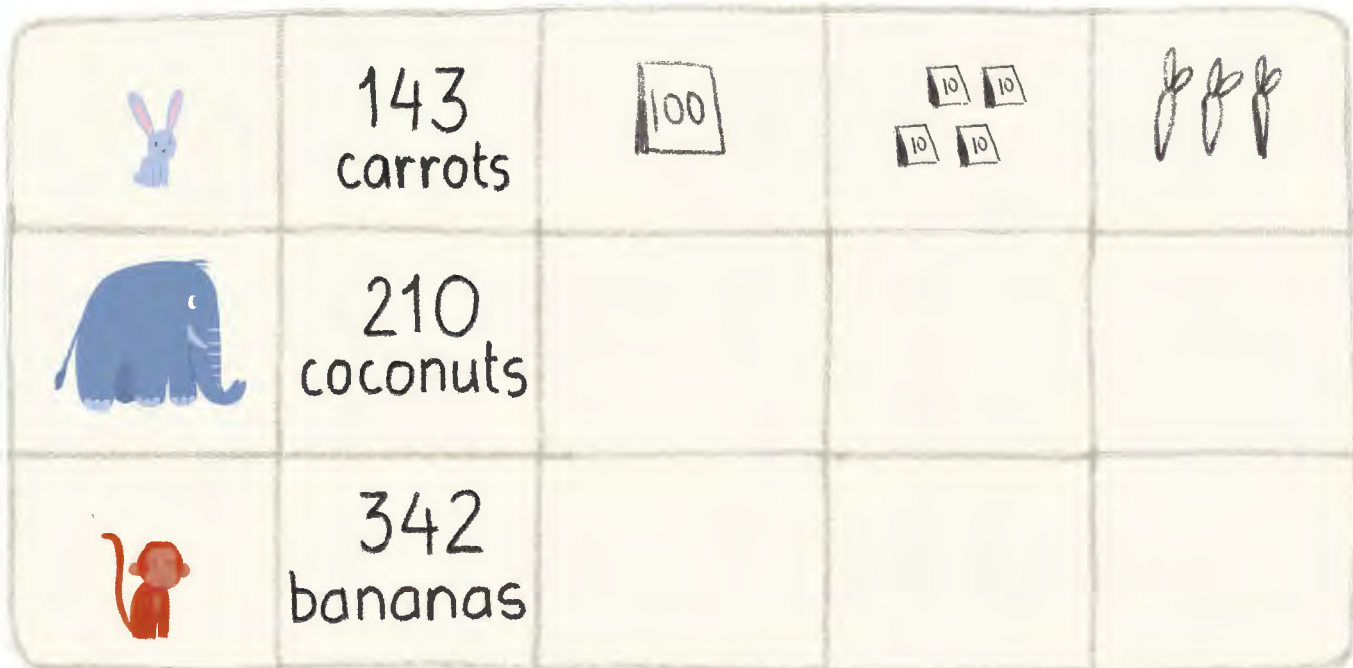 143
carrots
100
10 10
10 10
210
coconuts
342
bananas